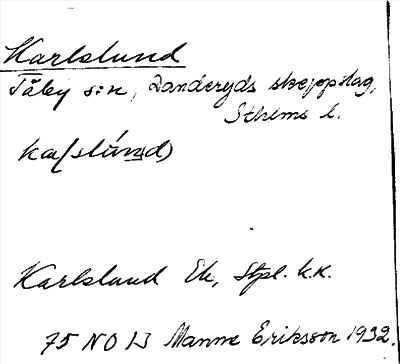 Karlslund
Täby s:n, Danderyds skeppslag,
Sthlms l.
ka(slúnd)
Karlslund Ek, Stpl. k.k.
75 NO 13 Manne Eriksson 1932.